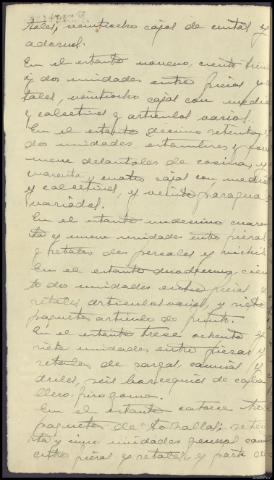 teles, veintiocho cajas de cintas y
adornos.
En el estante noveno, ciento
y dos unidades entre piezas y
tales, veintiocho cajas con medias
y calcetines y articulos varios.
En el estante decimo setenta y
dos unidades estambres y
nueve delantales de cocina, y
cuarenta y cuatro cajas con medias
y calcetines, y veinte paraguas
variados.
En el estante undecimo cuaren
ta y nueve unidades entre piezas
y retales de percales y
En el estante duodecimo, cien
to dos unidades entre piezas y
retales, articulos varios, y siete
paquetes articulo de punto.
En el estante trece ochenta y
siete unidades entre piezas y
retales de sarga, camisas y
driles, seis borceguies de caba
llero, piso goma.
En el estante catorce tres
paquetes de tohallas, seten
ta y cinco unidades genero
entre piezas y retales, y